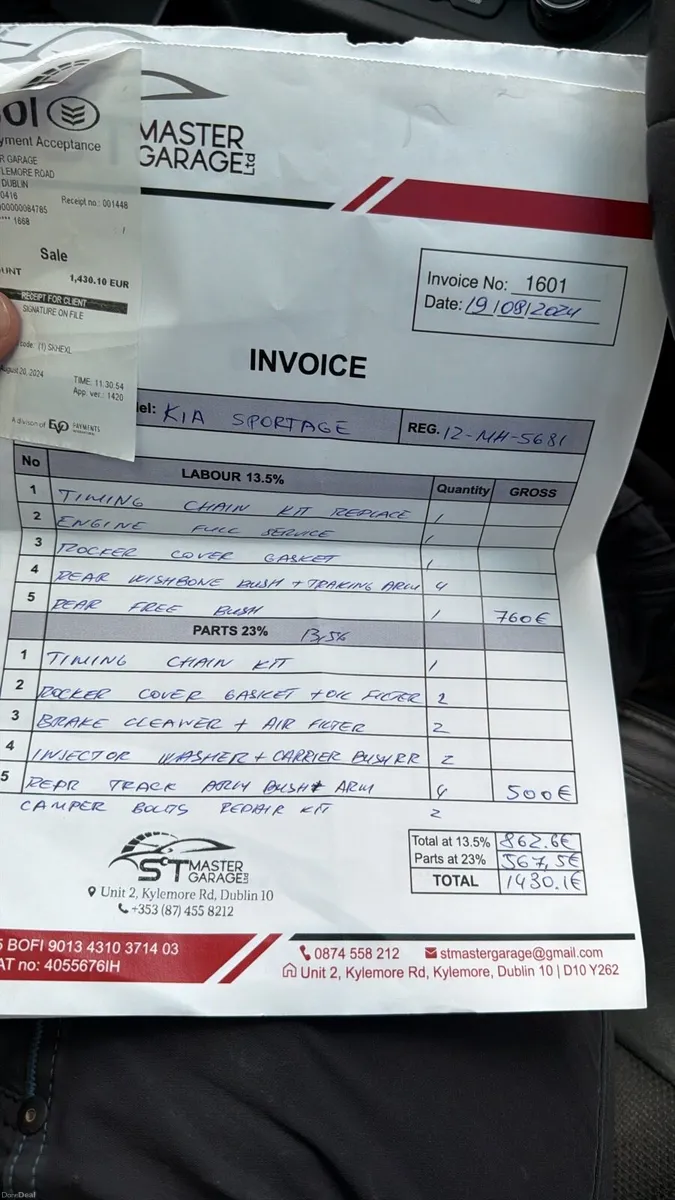 OI
yment Acceptance
R GARAGE
LEMORE ROAD
DUBLIN
0416
Receipt no.: 001448
00000084765
**** 1668
/
Sale
UNT
1,430.10 EUR
RECEIPT FOR CLIENT
SIGNATURE ON FILE
code: (1) SKHEXL
August 20, 2024
TIME: 11.30.54
App. ver.: 1420
A division of EVO PAYMENTS
MASTER
GARAGE Ltd
Invoice No: 1601
Date: 19/08/2024
INVOICE
el: KIA SPORTAGE
REG. 12-MH-5681
No LABOUR 13.5% Quantity GROSS
1 TIMING CHAIN KIT REPLACE 1
2 ENGINE FULL SERVICE 1
3 ROCKER COVER GASKET 1
4 REAR WISHBONE BUSH + TRAKING ARM 4
5 REAR FREE BUSH 1 760€
PARTS 23% 13,5%
1 TIMING CHAIN KIT 1
2 ROCKER COVER GASKET + OIL FILTER 2
3 BRAKE CLEANER + AIR FILTER 2
4 INJECTOR WASHER + CARRIER BUSH RR 2
5 REAR TRACK ARM BUSH + ARM 4 500€
CAMPER BOLTS REPAIR KIT 2
Total at 13.5% 862.6€
Parts at 23% 567,5€
TOTAL 1430.1€
ST MASTER
GARAGE Ltd
Unit 2, Kylemore Rd, Dublin 10
+353 (87) 455 8212
5 BOFI 9013 4310 3714 03
AT no: 4055676IH
0874 558 212 stmastergarage@gmail.com
Unit 2, Kylemore Rd, Kylemore, Dublin 10 | D10 Y262
DoneDeal